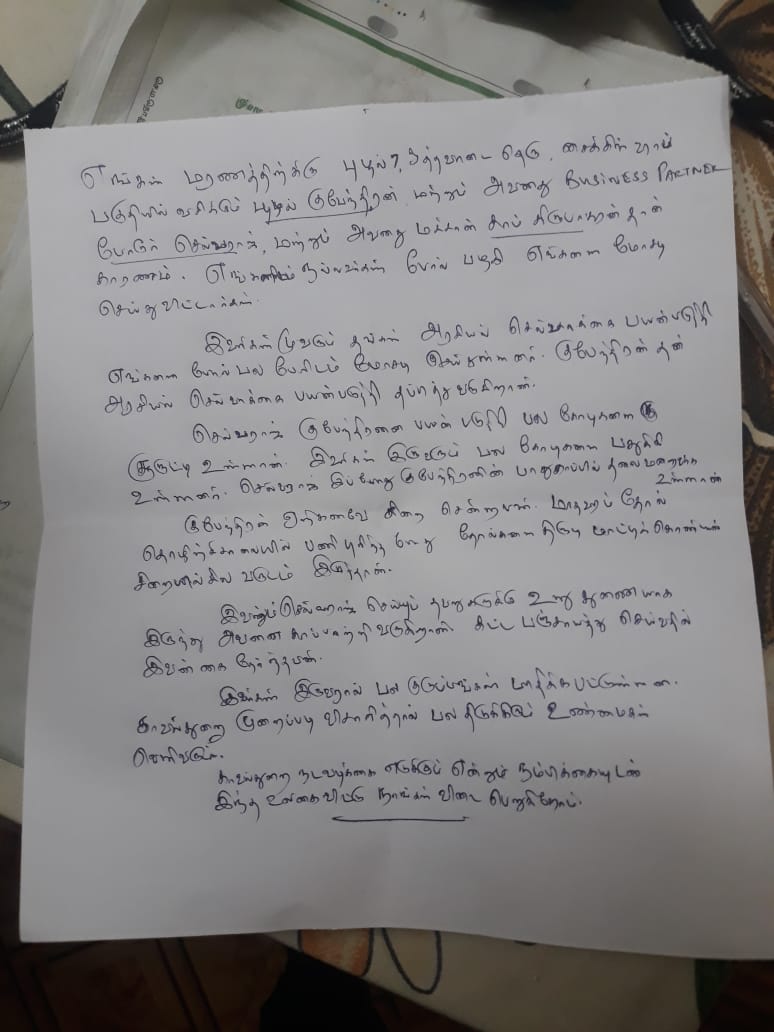 எங்கள் மரணத்திற்கு புழல், 3 தெரு, சைக்கிள் ஷாப்
பகுதியில் வசிக்கும் புழல் குபேந்திரன் மற்றும் அவனது BUSINESS PARTNER
போரூர் செல்வராஜ், மற்றும் அவனது மச்சான் காப் கிருபாகரன் தான்
காரணம். எங்களிடம் நல்லவர்கள் போல் பழகி எங்களை மோசடி
செய்து விட்டார்கள்.
இவர்கள் மூவரும் தங்கள் அரசியல் செல்வாக்கை பயன்படுத்தி
எங்களை போல் பல பேரிடம் மோசடி செய்துள்ளனர். குபேந்திரன் தன்
அரசியல் செல்வாக்கை பயன்படுத்தி தப்பித்து வருகிறான்.
செல்வராஜ் குபேந்திரனை பயன் படுத்தி பல கோடிகளை
சுருட்டி உள்ளான். இவர்கள் இருவரும் பல கோடிகளை பதுக்கி
உள்ளனர். செல்வராஜ் இப்போது குபேந்திரனின் பாதுகாப்பில் தலைமறைவாக
உள்ளான்
குபேந்திரன் ஏற்கனவே சிறை சென்றவன். மாதவரம் தோல்
தொழிற்சாலையில் பணி புரிந்த போது தோல்களை திருடி மாட்டிக் கொண்டு
சிறையில் சில வருடம் இருந்தான்.
இவனும் செல்வராஜ் செய்யும் தவறுகளுக்கு உறு துணையாக
இருந்து அவனை காப்பாற்றி வருகிறான். கட்ட பஞ்சாயத்து செய்வதில்
இவன் கை தேர்ந்தவன்.
இவர்கள் இருவரால் பல குடும்பங்கள் பாதிக்கபட்டுள்ளன.
காவல்துறை முறைப்படி விசாரித்தால் பல திடுக்கிடும் உண்மைகள்
வெளிவரும்.
காவல்துறை நடவடிக்கை எடுக்கும் என்றும் நம்பிக்கையுடன்
இந்த உலகைவிட்டு நாங்கள் விடை பெறுகிறோம்.